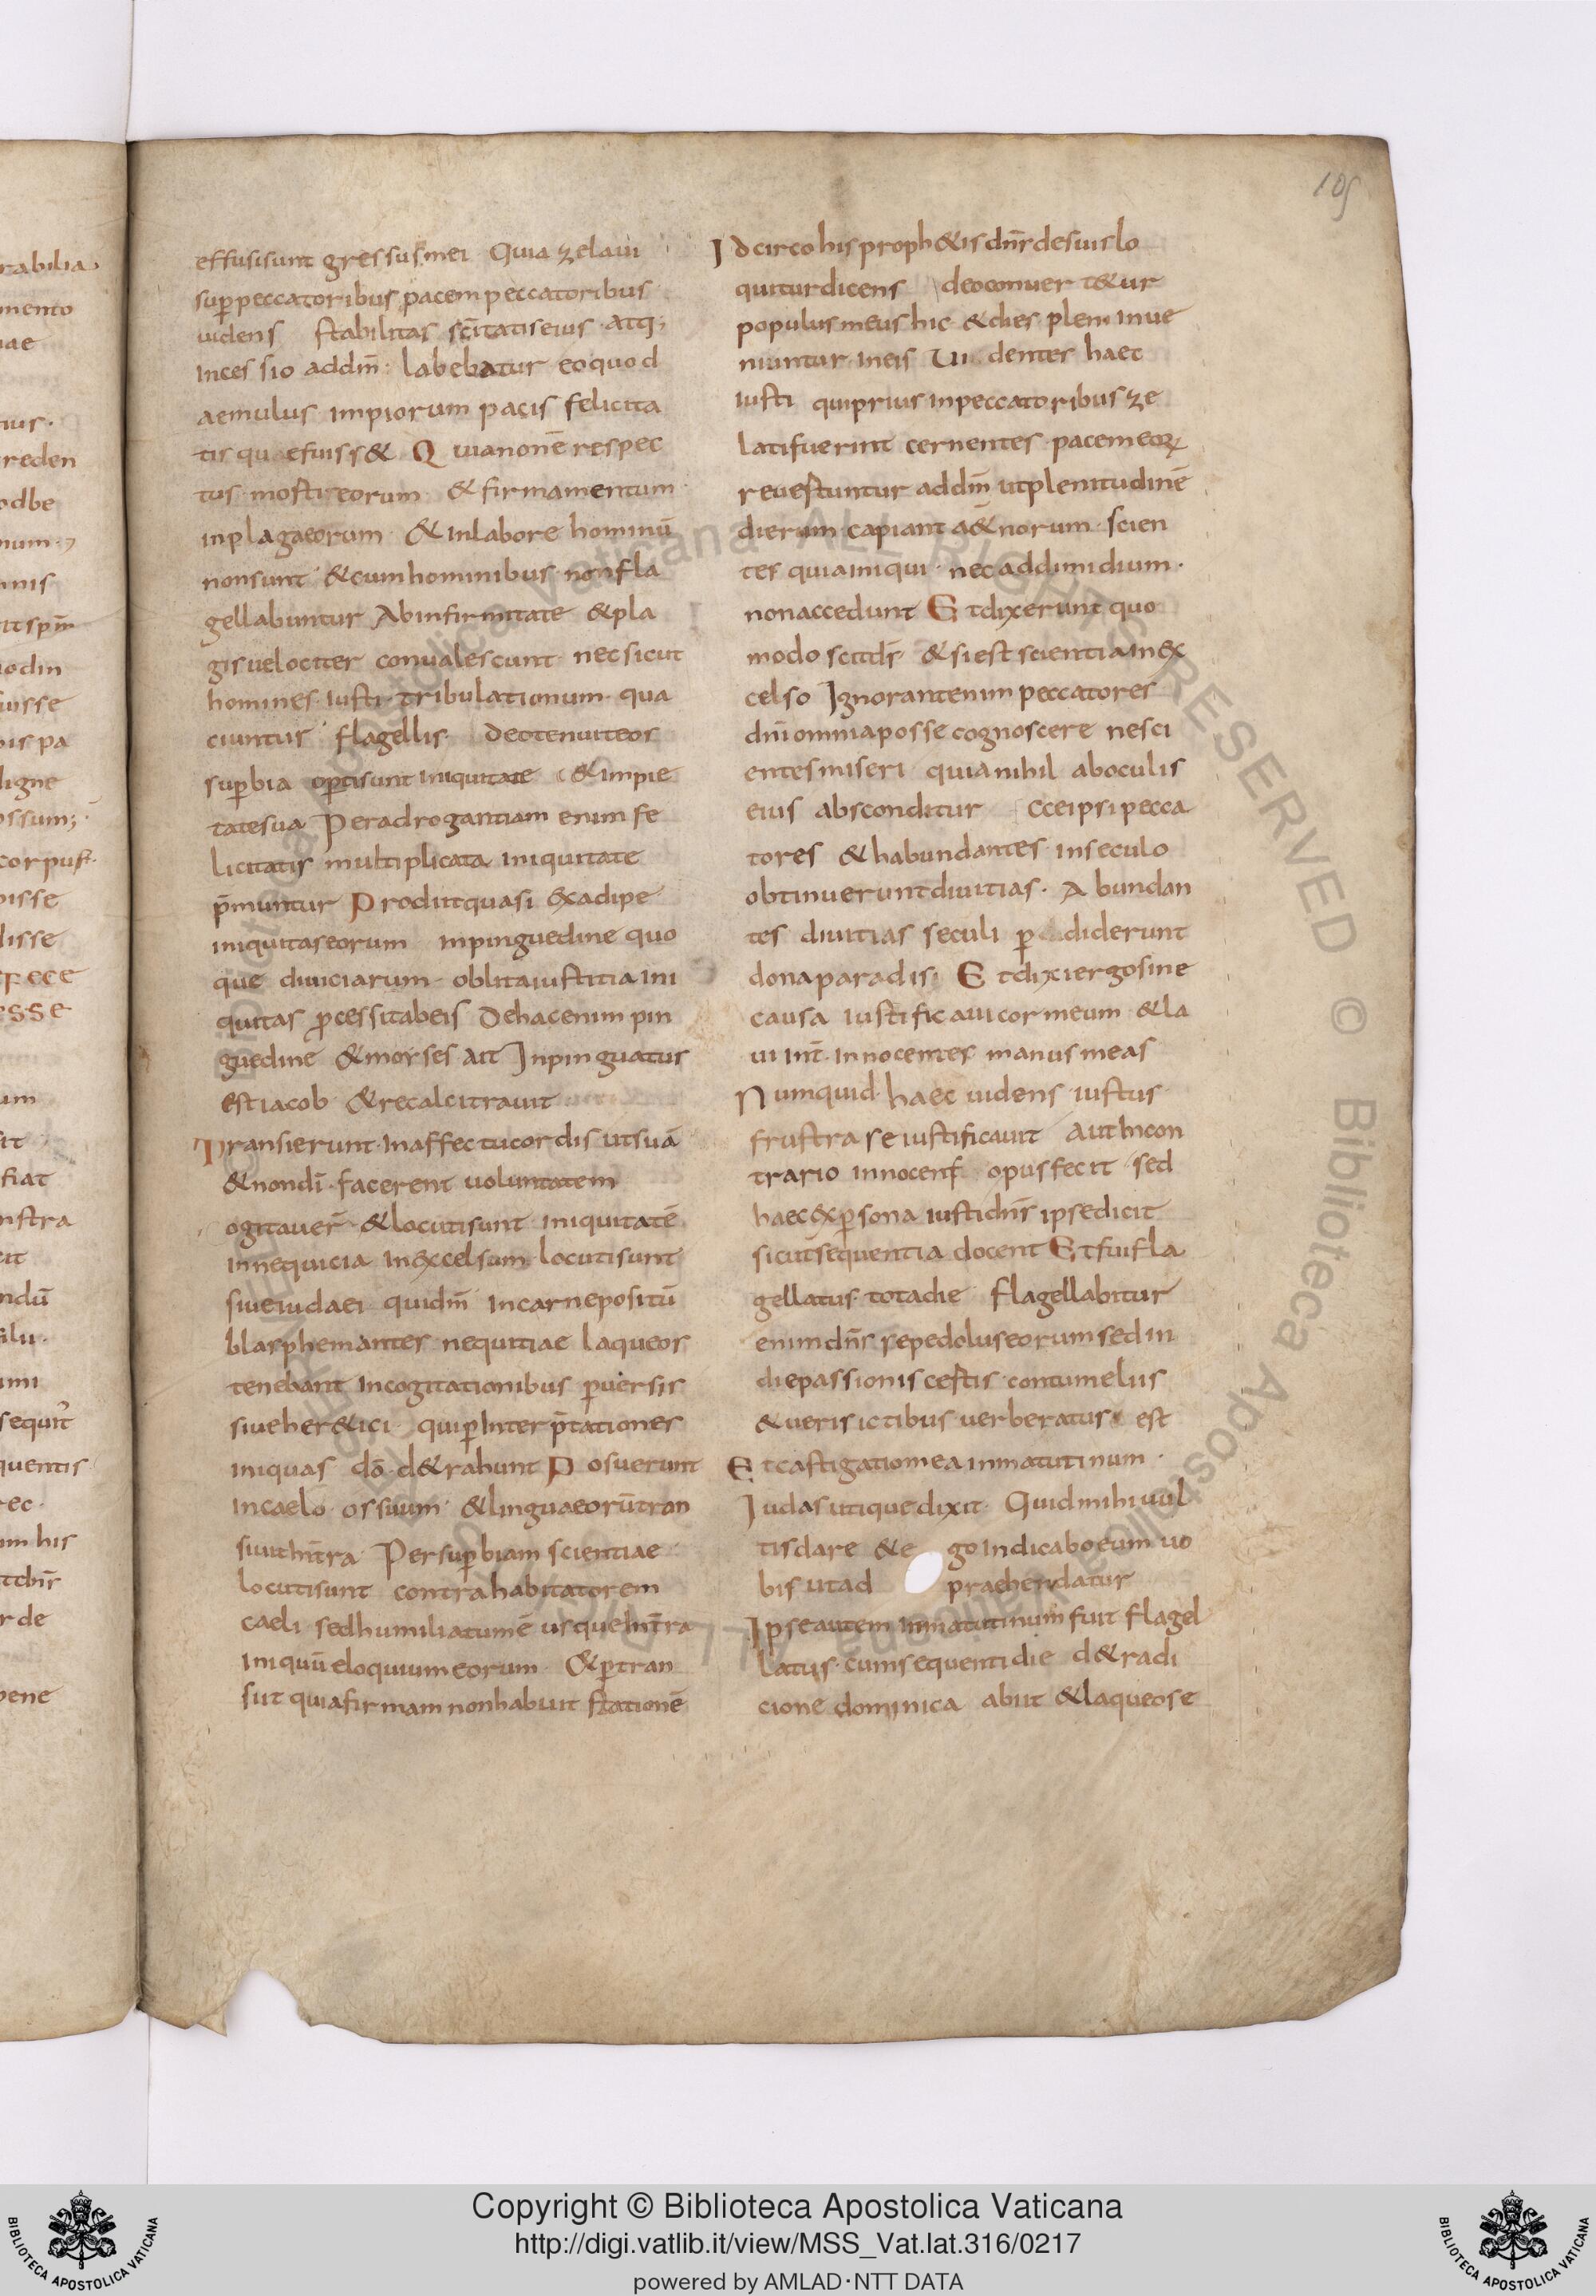 105
effusisunt gressusmei Quia zelaui
sup̄peccatoribus pacempeccatoribus
uidens stabilitas sc̄itatiseius atq;
inces sio addm̄ labebatur eoquod
aemulus impiorum pacis felicita
tis quaefuiss& Q uianonē respec
tus mosti eorum & firmamentum
inplagaeorum & inlabore hominū
nonsunt &cumhominibus nonfla
gellabuntur Abinfirmitate &pla
gisuelociter conualescunt necsicut
homines iusti tribulationum qua
ciuntur flagellis Deotenuiteos
sup̄bia op̄tisunt iniquitate &impie
tatesua Peradrogantiam enim fe
licitatis multiplicata iniquitate
p̄muntur Prodiitquasi exadipe
iniquitaseorum inpinguedine quo
que diuiciarum oblitaiustitia ini
quitas p̄cessitabeis Dehacenim pin
guedine &morses ait Inpinguatus
estiacob &recalcitrauit
Transierunt inaffectucordis utsuā
&nondī facerent uoluntatem
ogitauer̄ &locutisunt iniquitatē
innequicia inexcelsum locutisunt
siueiudaei quidm̄ incarnepositū
blasphemantes nequitiae laqueos
tenebant incogitationibus p̄uersis
siueher&ici quip̄ interp̄tationes
iniquas dō d&rahunt Posuerunt
incaelo ossuum &linguaeorūtran
siuitint̄ra Persup̄biam scientiae
locutisunt contrahabitatorem
caeli sedhumiliatumē usqueint̄ra
iniquū eloquiumeorum &p̄tran
siit quiafirmam nonhabuit stationē
Idcirco hisproph&is dn̄r desuislo
quiturdicens deoconuer t&ur
populusmeus hic &dies pleni inue
niuntur ineis Ui dentes haec
iusti quiprius inpeccatoribus ze
latifuerint cernentes pacemeoꝝ
reuestuntur addm̄ utplenitudinē
dierum capiant a&norum scien
tes quiainiqui nec addimidium
nonaccedunt E tdixerunt quo
modo sciitdr̄ &siest scientia inex
celso Ignorantenim peccatores
dn̄i omniaposse cognoscere nesci
entesmiseri quianihil aboculis
eius absconditur Cceipsi pecca
tores &habundantes inseculo
obtinueruntdiuitias A bundan
tes diuitias seculi p̄ diderunt
donaparadisi E tdixi ergosine
causa iustificauicormeum &la
ui int̄ innocentes manusmeas
Numquid haec uidens iustus
frustra se iustificauit Autincon
trario innocens opusfecit sed
haecexp̄sona iustidn̄s ipsedicit
sicutsequentia docent Etfuifla
gellatus totadie flagellabitur
enimdn̄s sepedoluseorumsedin
diepassionis ceftis contumeliis
&ueris ictibus uerberatus est
E tcastigatiomea inmatutinum
Iudasutiquedixit Quidmihiuul
tisdare &e goindicaboeum uo
bis utad praehendatur
Ipseautem inmatutinum fuit flagel
latus cumsequentidie d&radi
cione dominica abiit &laqueose
Copyright © Biblioteca Apostolica Vaticana
http://digi.vatlib.it/view/MSS_Vat.lat.316/0217
powered by AMLAD·NTT DATA